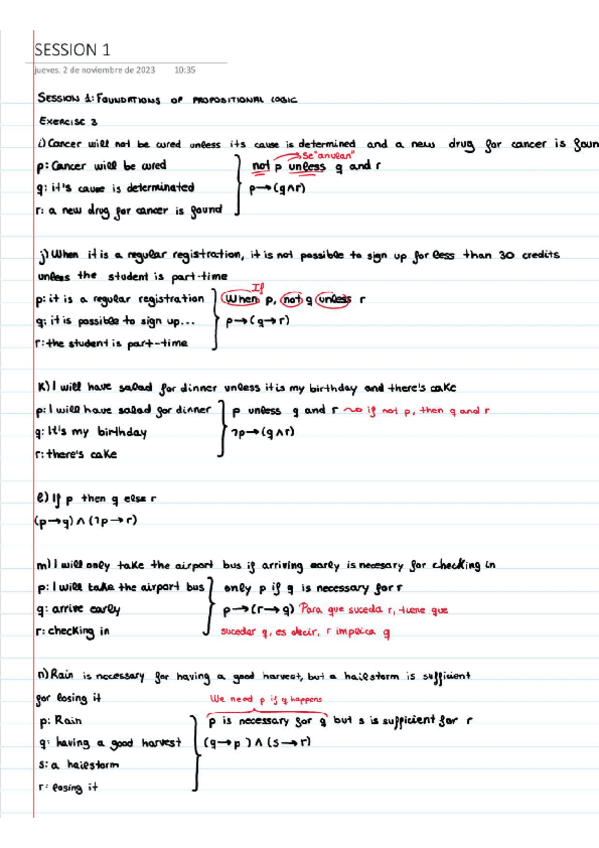 SESSION 1
jueves, 2 de noviembre de 2023 10:35
SESSION 1: FOUNDATIONS OF PROPOSITIONAL LOGIC
EXERCISE 3
i) Cancer will not be cured unless its cause is determined and a new drug for cancer is foun
Se "anulan"
p: Cancer will be cured not p unless q and r
q: it's cause is determinated p→(q∧r)
r: a new drug for cancer is found
j) When it is a regular registration, it is not possible to sign up for less than 30 credits
unless the student is part-time
If
p: it is a regular registration When p, not q unless r
q: it is possible to sign up... p→(q→r)
r: the student is part-time
K) I will have salad for dinner unless it is my birthday and there's cake
p: I will have salad for dinner p unless q and r ~> if not p, then q and r
q: It's my birthday ¬p→(q∧r)
r: there's cake
l) If p then q else r
(p→q)∧(¬p→r)
m) I will only take the airport bus if arriving early is necesary for checking in
p: I will take the airport bus only p if q is necessary for r
q: arrive early p→(r→q) Para que suceda r, tiene que
r: checking in suceder q, es decir, r implica q
n) Rain is necessary for having a good harvest, but a hailstorm is sufficient
for losing it We need p if q happens
p: Rain p is necessary for q but s is sufficient for r
q: having a good harvest (q→p)∧(s→r)
s: a hailstorm
r: losing it